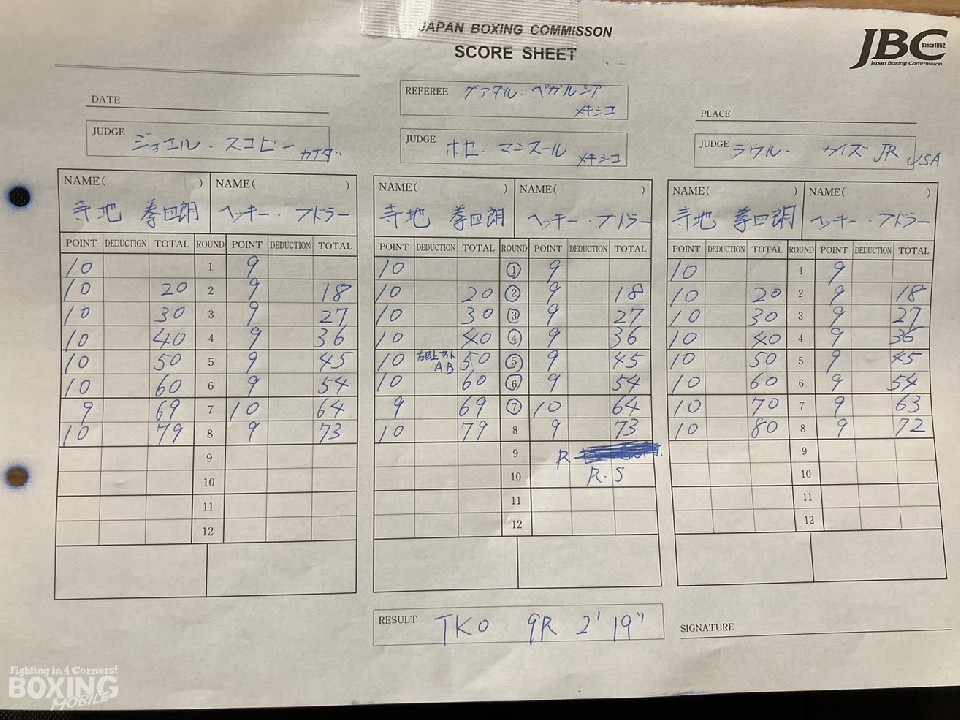 JAPAN BOXING COMMISSON
SCORE SHEET
JBC
Since1952
Japan Boxing Commission
DATE
REFEREE ゲアダル・ペガルシア メキシコ
PLACE
JUDGE ジョエル・スコビー カナダ
JUDGE ホセ・マンスール メキシコ
JUDGE ラウル・カイズJR USA
NAME( ) NAME( ) NAME( ) NAME( ) NAME( ) NAME( )
寺地 拳四朗 ヘッキー・ブドラー 寺地 拳四朗 ヘッキー・ブドラー 寺地 拳四朗 ヘッキー・ブドラー
POINT DEDUCTION TOTAL ROUND POINT DEDUCTION TOTAL POINT DEDUCTION TOTAL ROUND POINT DEDUCTION TOTAL POINT DEDUCTION TOTAL ROUND POINT DEDUCTION TOTAL
10 1 9 10 1 9 10 1 9
10 20 2 9 18 10 20 2 9 18 10 20 2 9 18
10 30 3 9 27 10 30 3 9 27 10 30 3 9 27
10 40 4 9 36 10 40 4 9 36 10 40 4 9 36
10 50 5 9 45 10 AB 50 5 9 45 10 50 5 9 45
10 60 6 9 54 10 60 6 9 54 10 60 6 9 54
9 69 7 10 64 9 69 7 10 64 10 70 7 9 63
10 79 8 9 73 10 79 8 9 73 10 80 8 9 72
9 9 R 9
10 10 R.S 10
11 11 11
12 12 12
RESULT TKO 9R 2'19"
SIGNATURE
Fighting in 4 Corners!
BOXING
MOBILE